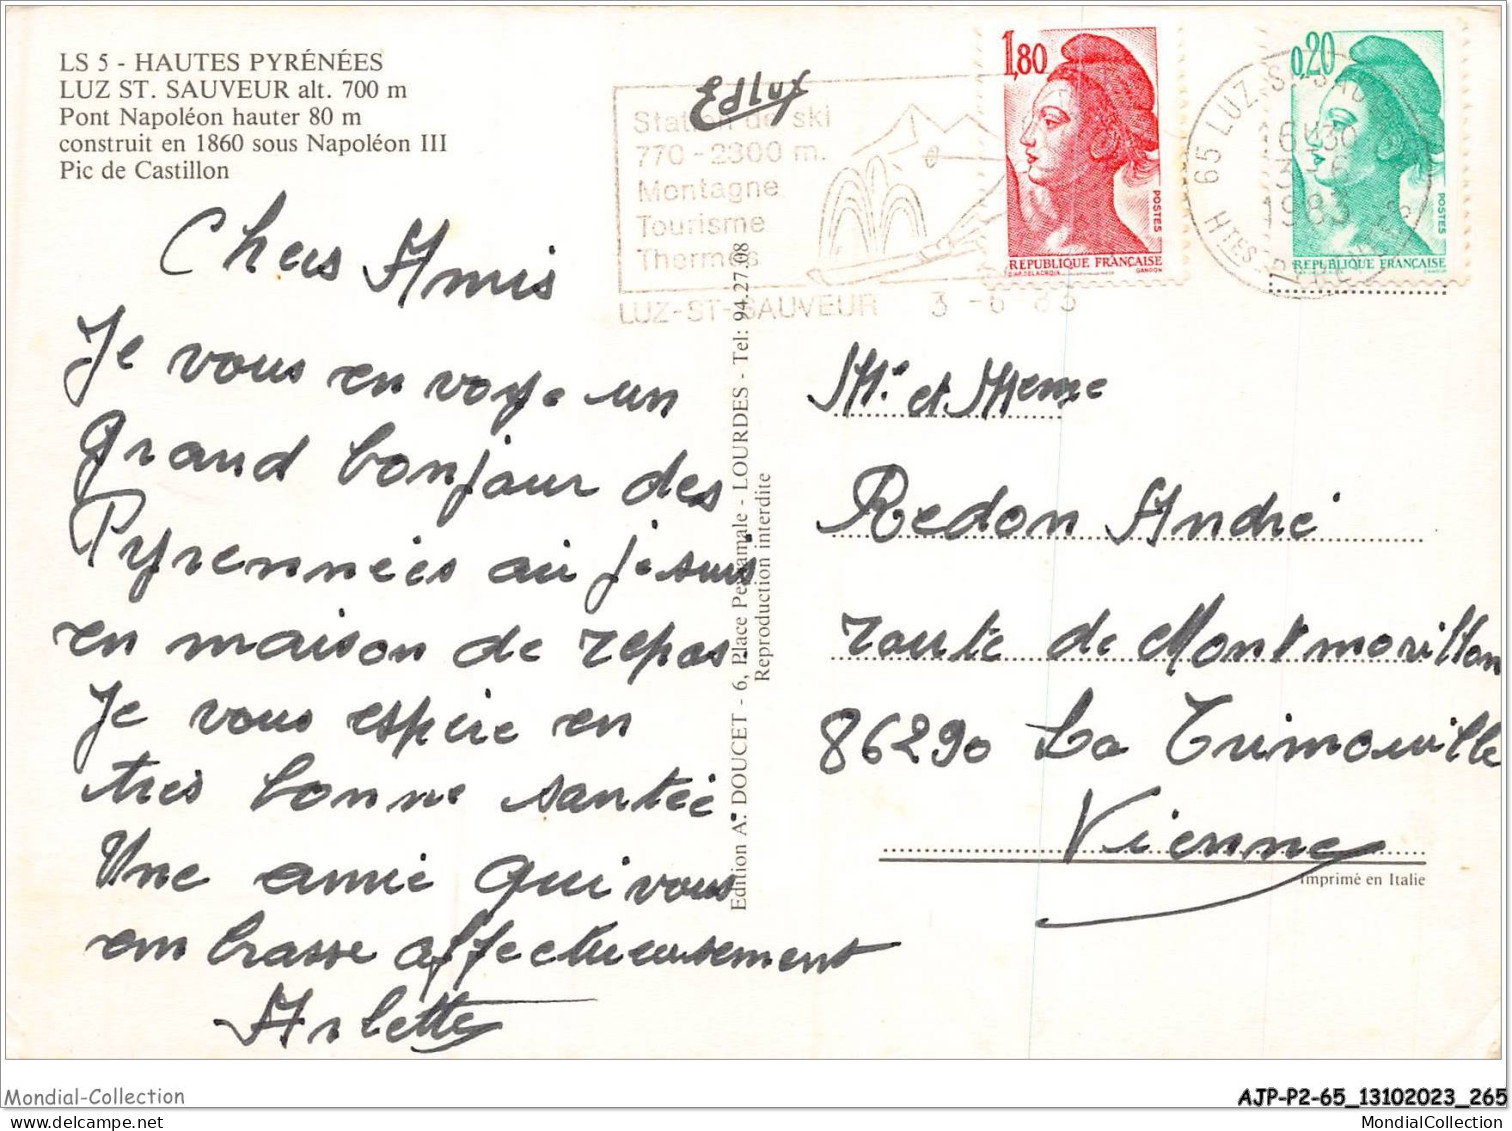 LS 5 - HAUTES PYRÉNÉES
LUZ ST. SAUVEUR alt. 700 m
Pont Napoléon hauter 80 m
construit en 1860 sous Napoléon III
Pic de Castillon
Edlux
Station de ski
770-2300 m.
Montagne
Tourisme
Thermes
LUZ-ST-SAUVEUR 3-6-83
1,80
POSTES
RÉPUBLIQUE FRANÇAISE
GANDON
0,20
POSTES
RÉPUBLIQUE FRANÇAISE
65 LUZ-ST-SAUVEUR
16H30
3-6
1983
HTES-PYRENEES
Chers Amis
Je vous en voye un
grand bonjour des
Pyrennées au je suis
en maison de repos.
Je vous espère en
très bonne santée
Une amie qui vous
em brasse affectueusement
Arlette
Edition A. DOUCET - 6, Place Peyramale - LOURDES - Tel: 94.27.08
Reproduction interdite
Mr et Meme
Redon André
route de Montmorillon
86290 La Trimouille
Vienne
Imprimé en Italie
Mondial-Collection
AJP-P2-65_13102023_265
MondialCollection